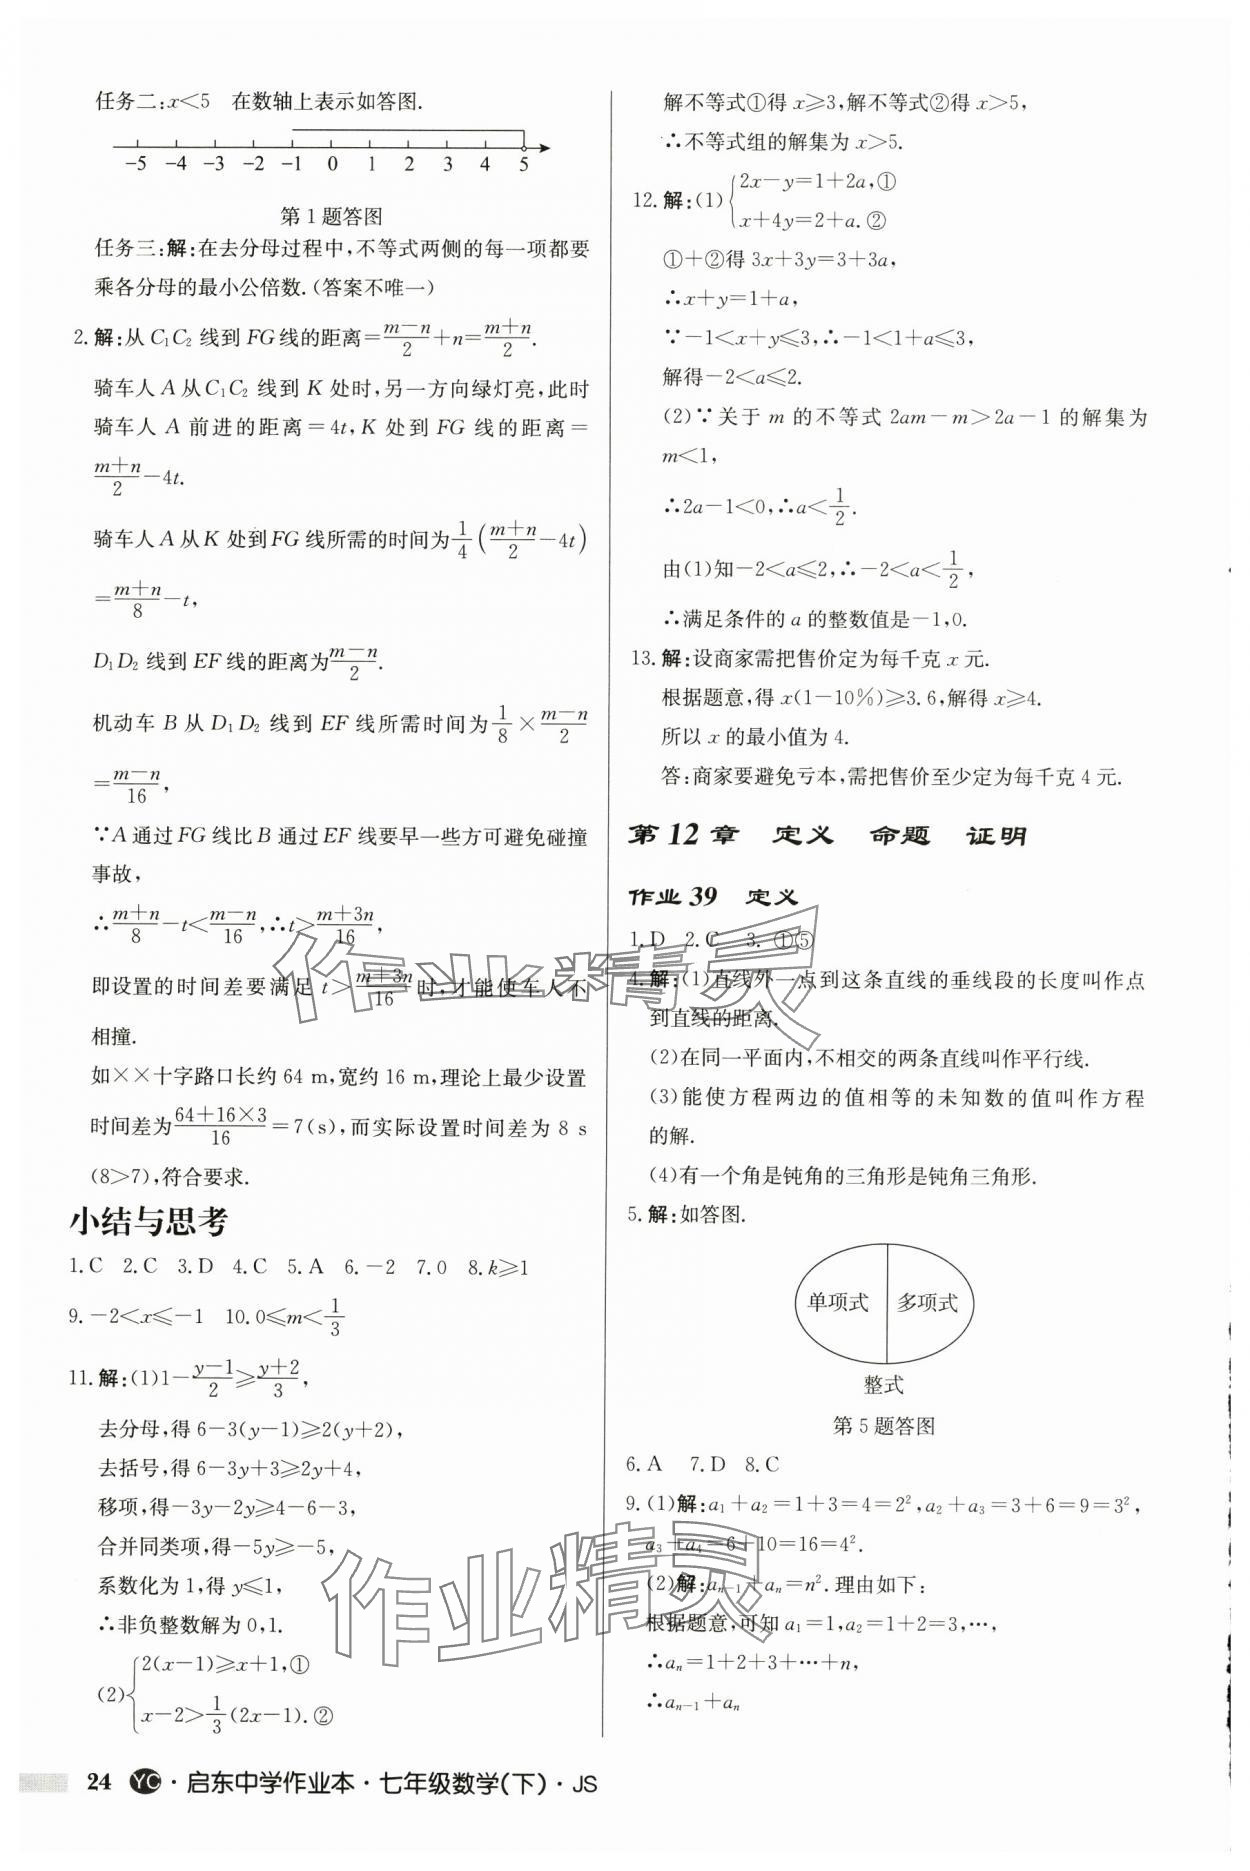 任务二:x<5　在数轴上表示如答图.
-5 -4 -3 -2 -1 0 1 2 3 4 5
第1题答图
任务三:解:在去分母过程中,不等式两侧的每一项都要
乘各分母的最小公倍数.(答案不唯一)
2.解:从C₁C₂线到FG线的距离=(m-n)/2+n=(m+n)/2.
骑车人A从C₁C₂线到K处时,另一方向绿灯亮,此时
骑车人A前进的距离=4t,K处到FG线的距离=
(m+n)/2-4t.
骑车人A从K处到FG线所需的时间为1/4((m+n)/2-4t)
=(m+n)/8-t,
D₁D₂线到EF线的距离为(m-n)/2.
机动车B从D₁D₂线到EF线所需时间为1/8×(m-n)/2
=(m-n)/16,
∵A通过FG线比B通过EF线要早一些方可避免碰撞
事故,
∴(m+n)/8-t<(m-n)/16,∴t>(m+3n)/16,
即设置的时间差要满足t>(m+3n)/16时,才能使车人不
相撞.
如××十字路口长约64 m,宽约16 m,理论上最少设置
时间差为(64+16×3)/16=7(s),而实际设置时间差为8 s
(8>7),符合要求.
小结与思考
1.C 2.C 3.D 4.C 5.A 6.-2 7.0 8.k≥1
9.-2<x≤-1 10.0≤m<1/3
11.解:(1)1-(y-1)/2≥(y+2)/3,
去分母,得6-3(y-1)≥2(y+2),
去括号,得6-3y+3≥2y+4,
移项,得-3y-2y≥4-6-3,
合并同类项,得-5y≥-5,
系数化为1,得y≤1,
∴非负整数解为0,1.
(2){2(x-1)≥x+1,①
x-2>1/3(2x-1).②
解不等式①得x≥3,解不等式②得x>5,
∴不等式组的解集为x>5.
12.解:(1){2x-y=1+2a,①
x+4y=2+a.②
①+②得3x+3y=3+3a,
∴x+y=1+a,
∵-1<x+y≤3,∴-1<1+a≤3,
解得-2<a≤2.
(2)∵关于m的不等式2am-m>2a-1的解集为
m<1,
∴2a-1<0,∴a<1/2.
由(1)知-2<a≤2,∴-2<a<1/2,
∴满足条件的a的整数值是-1,0.
13.解:设商家需把售价定为每千克x元.
根据题意,得x(1-10%)≥3.6,解得x≥4.
所以x的最小值为4.
答:商家要避免亏本,需把售价至少定为每千克4元.
第12章　定义　命题　证明
作业39　定义
1.D 2.C 3.①⑤
4.解:(1)直线外一点到这条直线的垂线段的长度叫作点
到直线的距离.
(2)在同一平面内,不相交的两条直线叫作平行线.
(3)能使方程两边的值相等的未知数的值叫作方程
的解.
(4)有一个角是钝角的三角形是钝角三角形.
5.解:如答图.
单项式 多项式
整式
第5题答图
6.A 7.D 8.C
9.(1)解:a₁+a₂=1+3=4=2²,a₂+a₃=3+6=9=3²,
a₃+a₄=6+10=16=4².
(2)解:aₙ₋₁+aₙ=n².理由如下:
根据题意,可知a₁=1,a₂=1+2=3,…,
∴aₙ=1+2+3+…+n,
∴aₙ₋₁+aₙ
作业精灵
作业精灵
24 YC·启东中学作业本·七年级数学(下)·JS